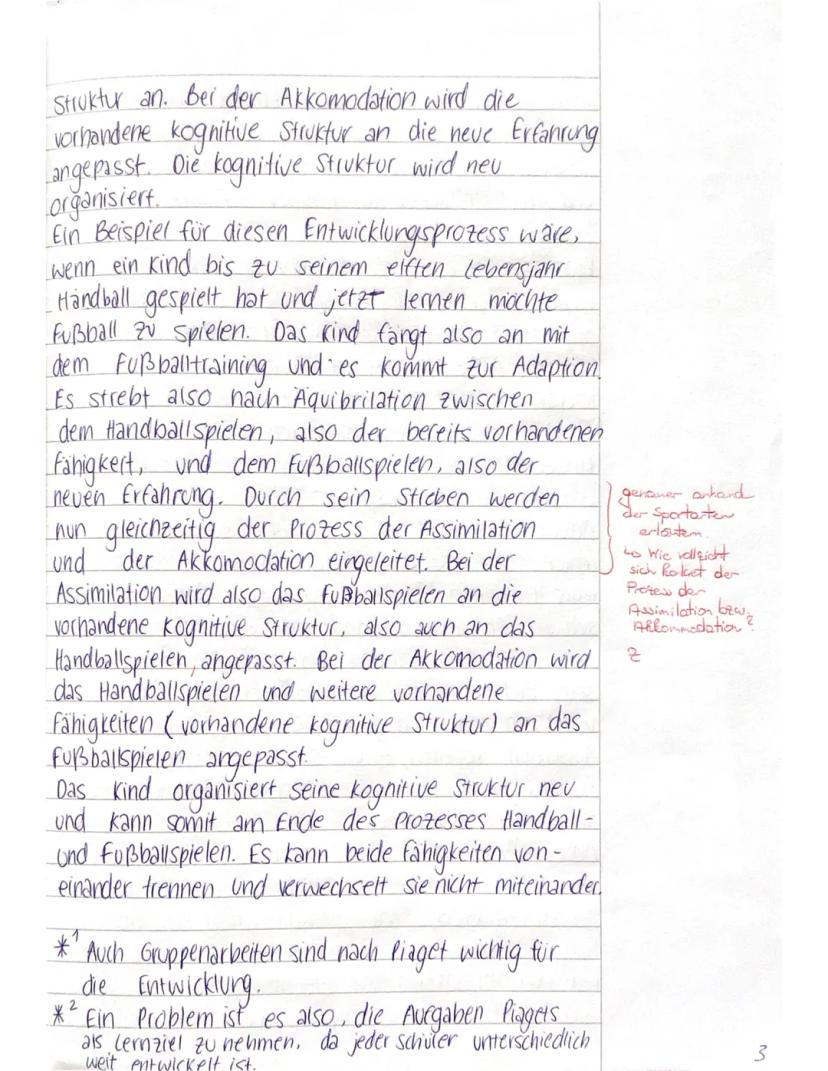 Struktur an. Bei der Akkomodation wird die
vorhandene kognitive Struktur an die neue Erfahrung
angepasst. Die kognitive Struktur wird neu
organisiert.
Ein Beispiel für diesen Entwicklungsprozess wäre,
wenn ein Kind bis zu seinem elften Lebensjahr
Handball gespielt hat und jetzt lernen möchte
Fußball zu spielen. Das Kind fängt also an mit
dem Fußballtraining und es kommt zur Adaption.
Es strebt also nach Äquibrilation zwischen
dem Handballspielen, also der bereits vorhandenen
Fähigkeit, und dem Fußballspielen, also der
neuen Erfahrung. Durch sein Streben werden
nun gleichzeitig der Prozess der Assimilation
und der Akkomodation eingeleitet. Bei der
Assimilation wird also das Fußballspielen an die
vorhandene kognitive Struktur, also auch an das
Handballspielen, angepasst. Bei der Akkomodation wird
das Handballspielen und weitere vorhandene
Fähigkeiten (vorhandene kognitive Struktur) an das
Fußballspielen angepasst.
Das Kind organisiert seine kognitive Struktur neu
und kann somit am Ende des Prozesses Handball-
und Fußballspielen. Es kann beide Fähigkeiten von-
einander trennen und verwechselt sie nicht miteinander.
*1 Auch Gruppenarbeiten sind nach Piaget wichtig für
die Entwicklung.
*2 Ein Problem ist es also, die Aufgaben Piagets
als Lernziel zu nehmen, da jeder Schüler unterschiedlich
weit entwickelt ist.
genauer anhand
der Sportarten
erläutern.
↳ Wie vollzieht
sich konket der
Prozess der
Assimilation bzw.
Akkommodation?
Z
3